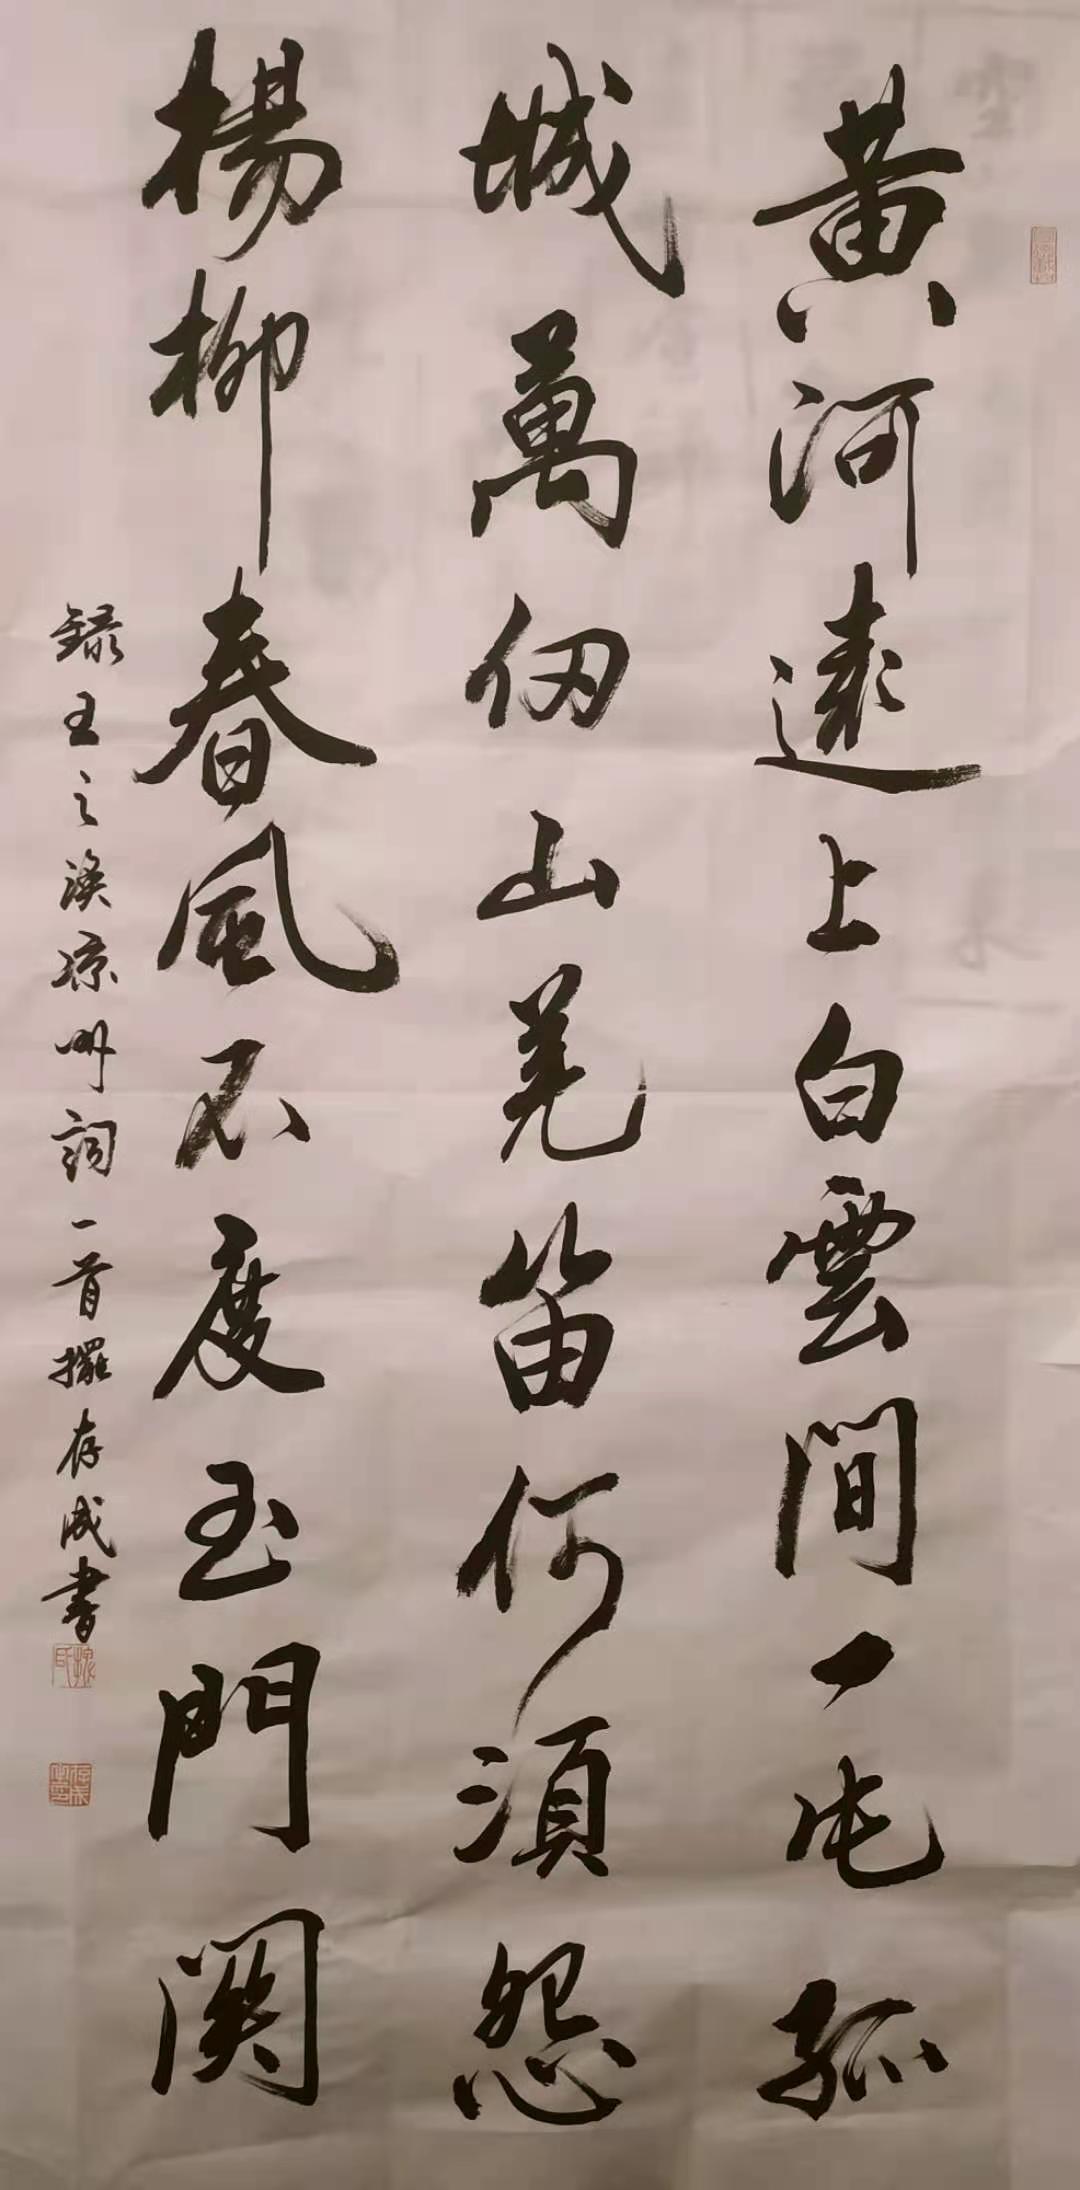 黄河遠上白雲間一片孤
城萬仞山羌笛何須怨
楊柳春風不度玉門関
録王之渙凉州詞一首擢存成書